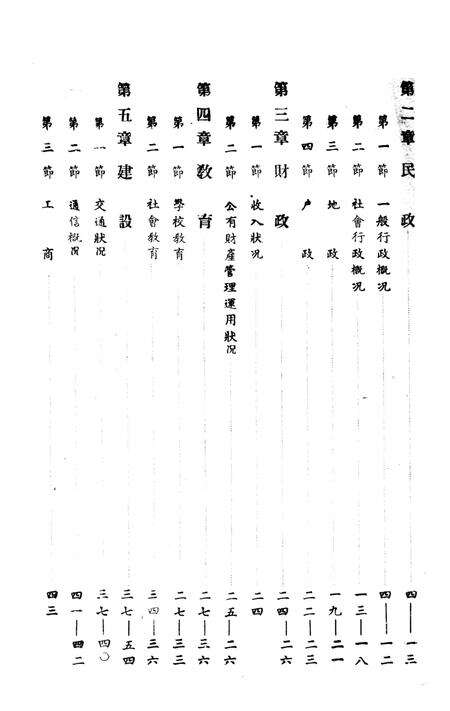 第二章 民政 四——一三
第一節 一般行政概况 四——一二
第二節 社會行政概况 一三——一八
第三節 地政 一九——二一
第四節 户政 二二——二三
第三章 財政 二四——二六
第一節 收入狀况 二四
第二節 公有財產管理運用狀况 二五——二六
第四章 教育 二七——三六
第一節 學校教育 二七——三三
第二節 社會教育 三四——三六
第五章 建設 三七——五四
第一節 交通狀况 三七——四〇
第二節 通信概况 四一——四二
第三節 工商 四三